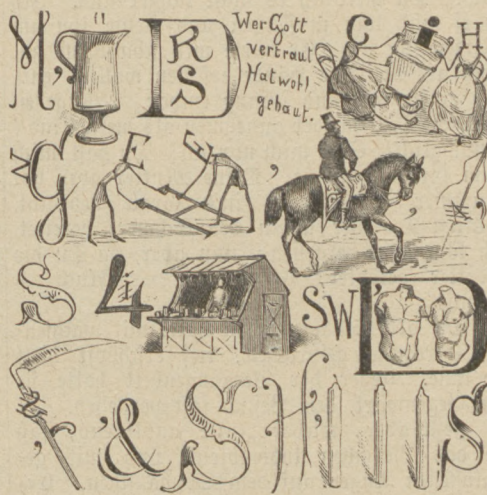 M , " D R S
Wer Gott
vertraut
Hat wohl
gebaut.
C i H
N G E E , , ,
S 4 i SW D
, r '& S H ' S